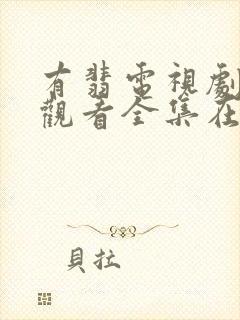 有翡電視劇
觀看全集在
貝拉